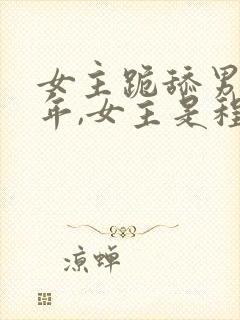 女主跪舔男
年,女主是程
凉蝉